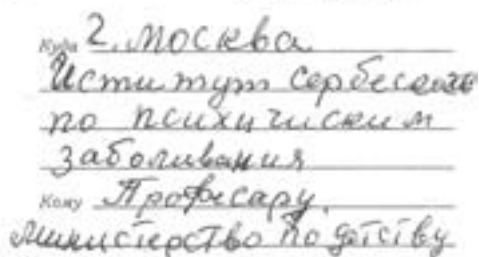 Куда г. Москва.
Иститут сербского
по психичиским
заболивания
Кому Профисару.
министерство по детству